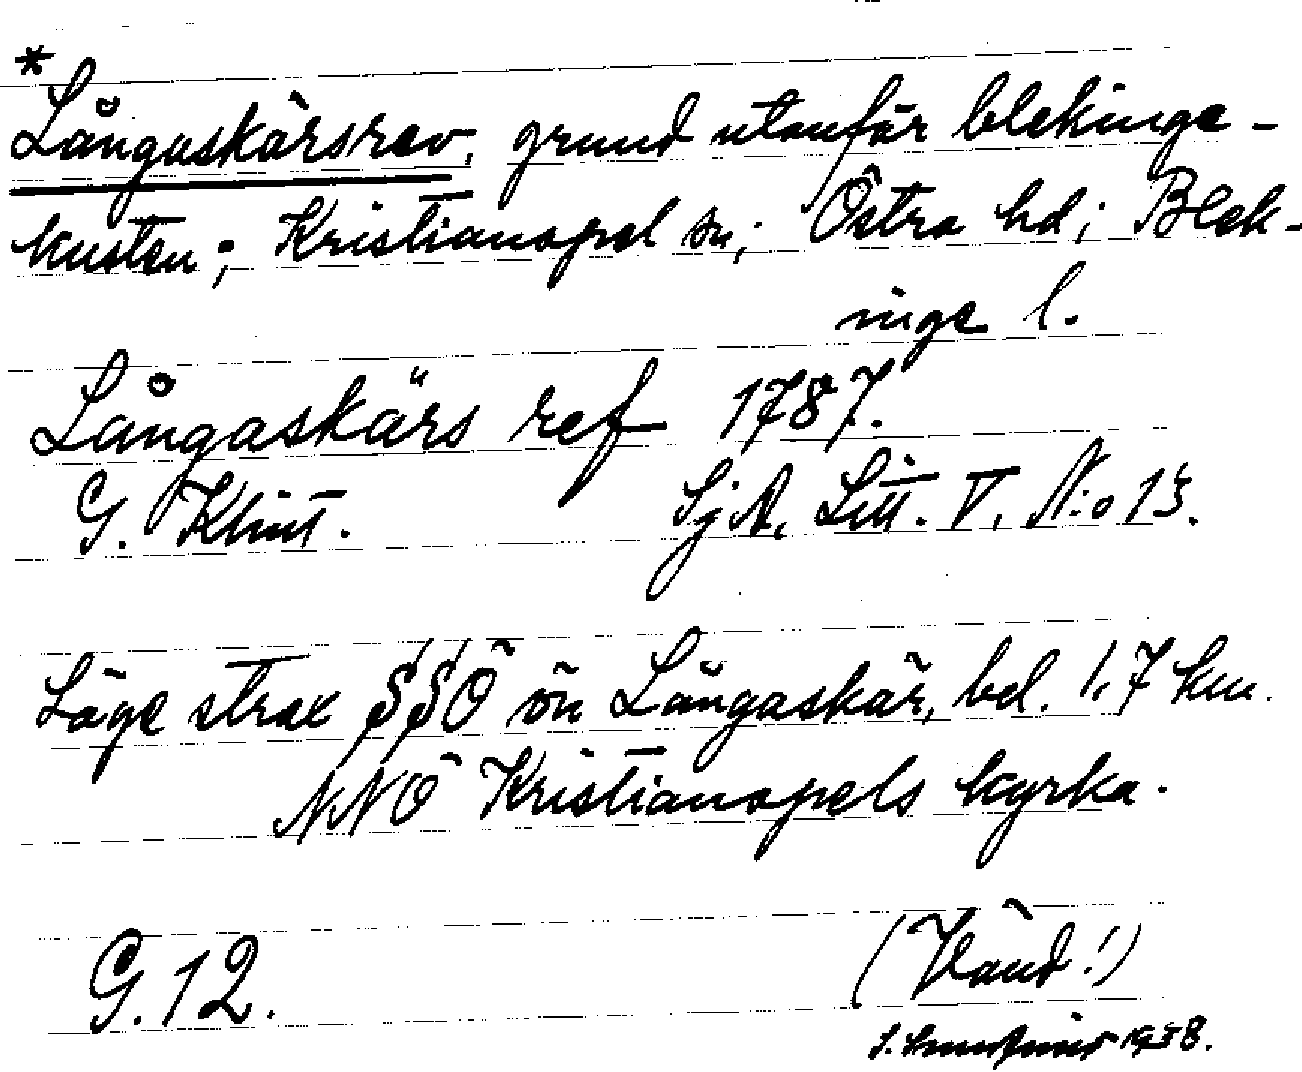 *
Långaskärsrev, grund utanför blekinge-
kusten; Kristianopel sn; Östra hd; Blek-
inge l.
Långaskärs ref 1787.
G. Klint. SjA, Litt. V, N:o 13.
Läge strax SSÖ ön Långaskär, bel. 1,7 km.
NNO Kristianopels kyrka.
G.12.
(Vänd!)
1938.